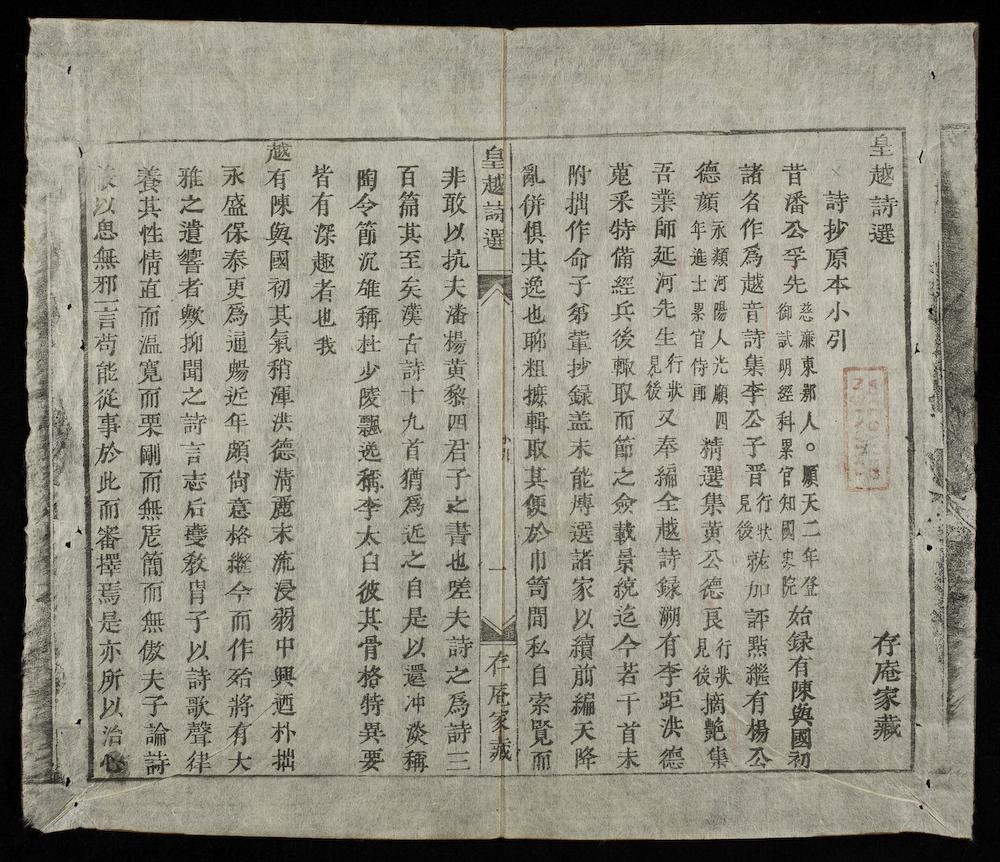 皇越詩選
存庵家藏
詩抄原本小引
昔潘公孚先慈廉東鄂人。順天二年登御試明經科累官知國史院始録有陳與國初
諸名作爲越音詩集李公子晋行狀見後就加評點繼有楊公
德顔永頬河陽人光順四年進士累官侍郎精選集黄公德良行狀見後摘艶集
吾業師延河先生行狀見後又奉編全越詩録溯有李距洪德
蒐釆特備經兵後輙取而節之僉載景統迄今若干首未
附拙作命子弟輩抄録盖未能慱選諸家以續前編天降
亂併俱其逸也聊粗摭輯取其便於巾笥間私自索覽而
皇越詩選
小引
一
存庵家藏
非敢以抗夫潘楊黄黎四君子之書也嗟夫詩之爲詩三
百篇其至矣漢古詩十九首猶爲近之自是以還冲淡稱
陶令節沉雄稱杜少陵飄逸稱李太白彼其骨格特異要
皆有深趣者也我
越有陳與國初其氣稍渾洪德清麗末流浸弱中興廼朴拙
永盛保泰更爲通鬯近年頗尙意格繼今而作殆將有大
雅之遺響者歟抑聞之詩言志后夔敎胄子以詩歌聲律
養其性情直而温寛而栗剛而無虐簡而無傲夫子論詩
以思無邪一言苟能從事於此而審擇焉是亦所以治心